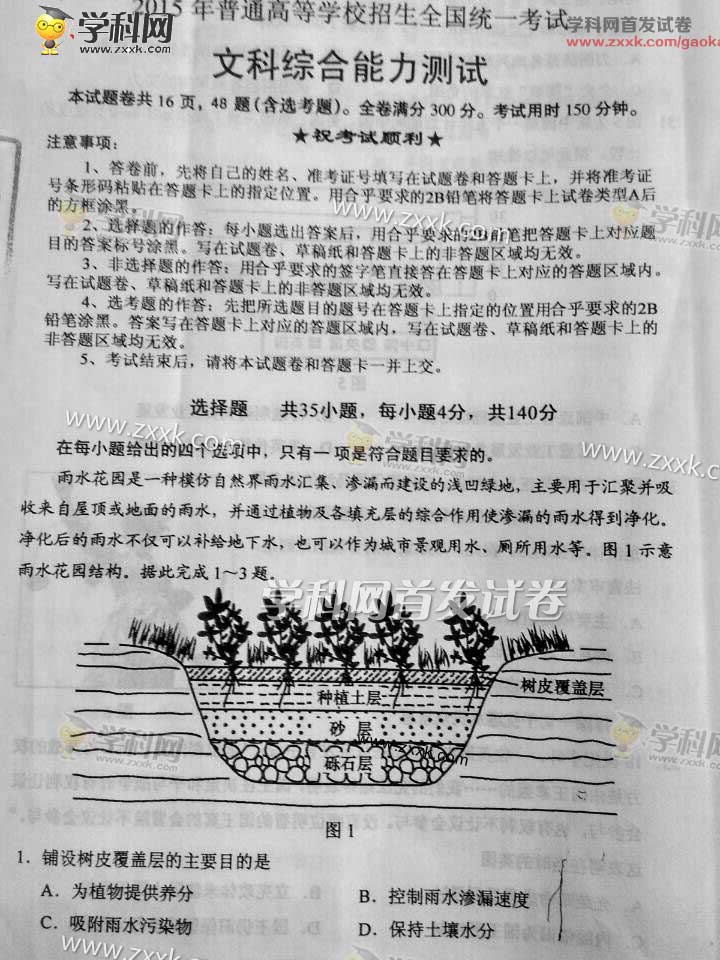 2015年普通高等学校招生全国统一考试
学科网首发试卷
www.zxxk.com/gaoka
学科网
zxxk.com
文科综合能力测试
本试题卷共16页，48题（含选考题）。全卷满分300分。考试用时150分钟。
★祝考试顺利★
注意事项：
1、答卷前，先将自己的姓名、准考证号填写在试题卷和答题卡上，并将准考证
号条形码粘贴在答题卡上的指定位置。用合乎要求的2B铅笔将答题卡上试卷类型A后
的方框涂黑。
2、选择题的作答：每小题选出答案后，用合乎要求的2B铅笔把答题卡上对应题
目的答案标号涂黑。写在试题卷、草稿纸和答题卡上的非答题区域均无效。
3、非选择题的作答：用合乎要求的签字笔直接答在答题卡上对应的答题区域内。
写在试题卷、草稿纸和答题卡上的非答题区域均无效。
4、选考题的作答：先把所选题目的题号在答题卡上指定的位置用合乎要求的2B
铅笔涂黑。答案写在答题卡上对应的答题区域内，写在试题卷、草稿纸和答题卡上的
非答题区域均无效。
5、考试结束后，请将本试题卷和答题卡一并上交。
选择题 共35小题，每小题4分，共140分
www.zxxk.com
学科网
zxxk.com
www.zxxk.com
在每小题给出的四个选项中，只有一项是符合题目要求的。
雨水花园是一种模仿自然界雨水汇集、渗漏而建设的浅凹绿地，主要用于汇聚并吸
收来自屋顶或地面的雨水，并通过植物及各填充层的综合作用使渗漏的雨水得到净化。
净化后的雨水不仅可以补给地下水，也可以作为城市景观用水、厕所用水等。图1示意
雨水花园结构。据此完成1～3题。
学科网首发试卷
树皮覆盖层
种植土层
砂 层
砾石层
www.zxxk.com
学科网
zxxk.com
学科网
zxxk.com
图1
1．铺设树皮覆盖层的主要目的是
A．为植物提供养分
B．控制雨水渗漏速度
C．吸附雨水污染物
D．保持土壤水分
www.zxxk.com
学科网
zxxk.com
www.zxxk.com